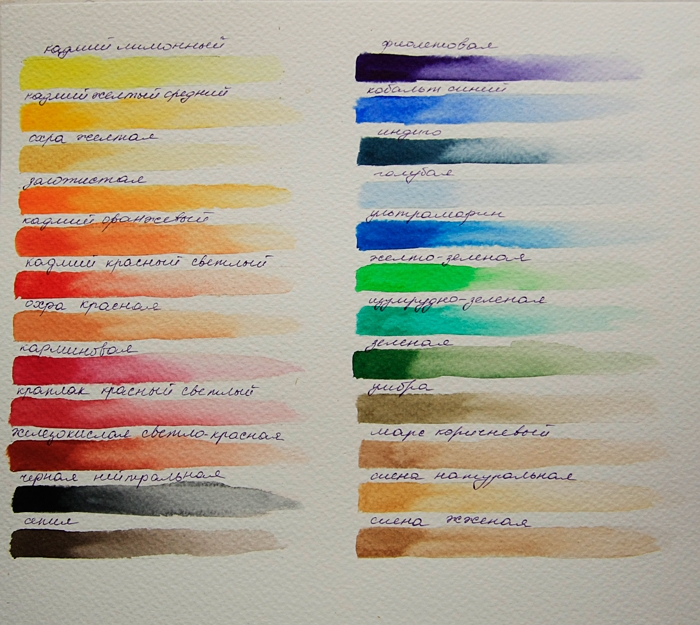 кадмий лимонный
кадмий желтый средний
охра желтая
золотистая
кадмий оранжевый
кадмий красный светлый
охра красная
карминовая
краплак красный светлый
железокислая светло-красная
черная нейтральная
сепия
фиолетовая
кобальт синий
индиго
голубая
ультрамарин
желто-зеленая
изумрудно-зеленая
зеленая
умбра
марс коричневый
сиена натуральная
сиена жженая